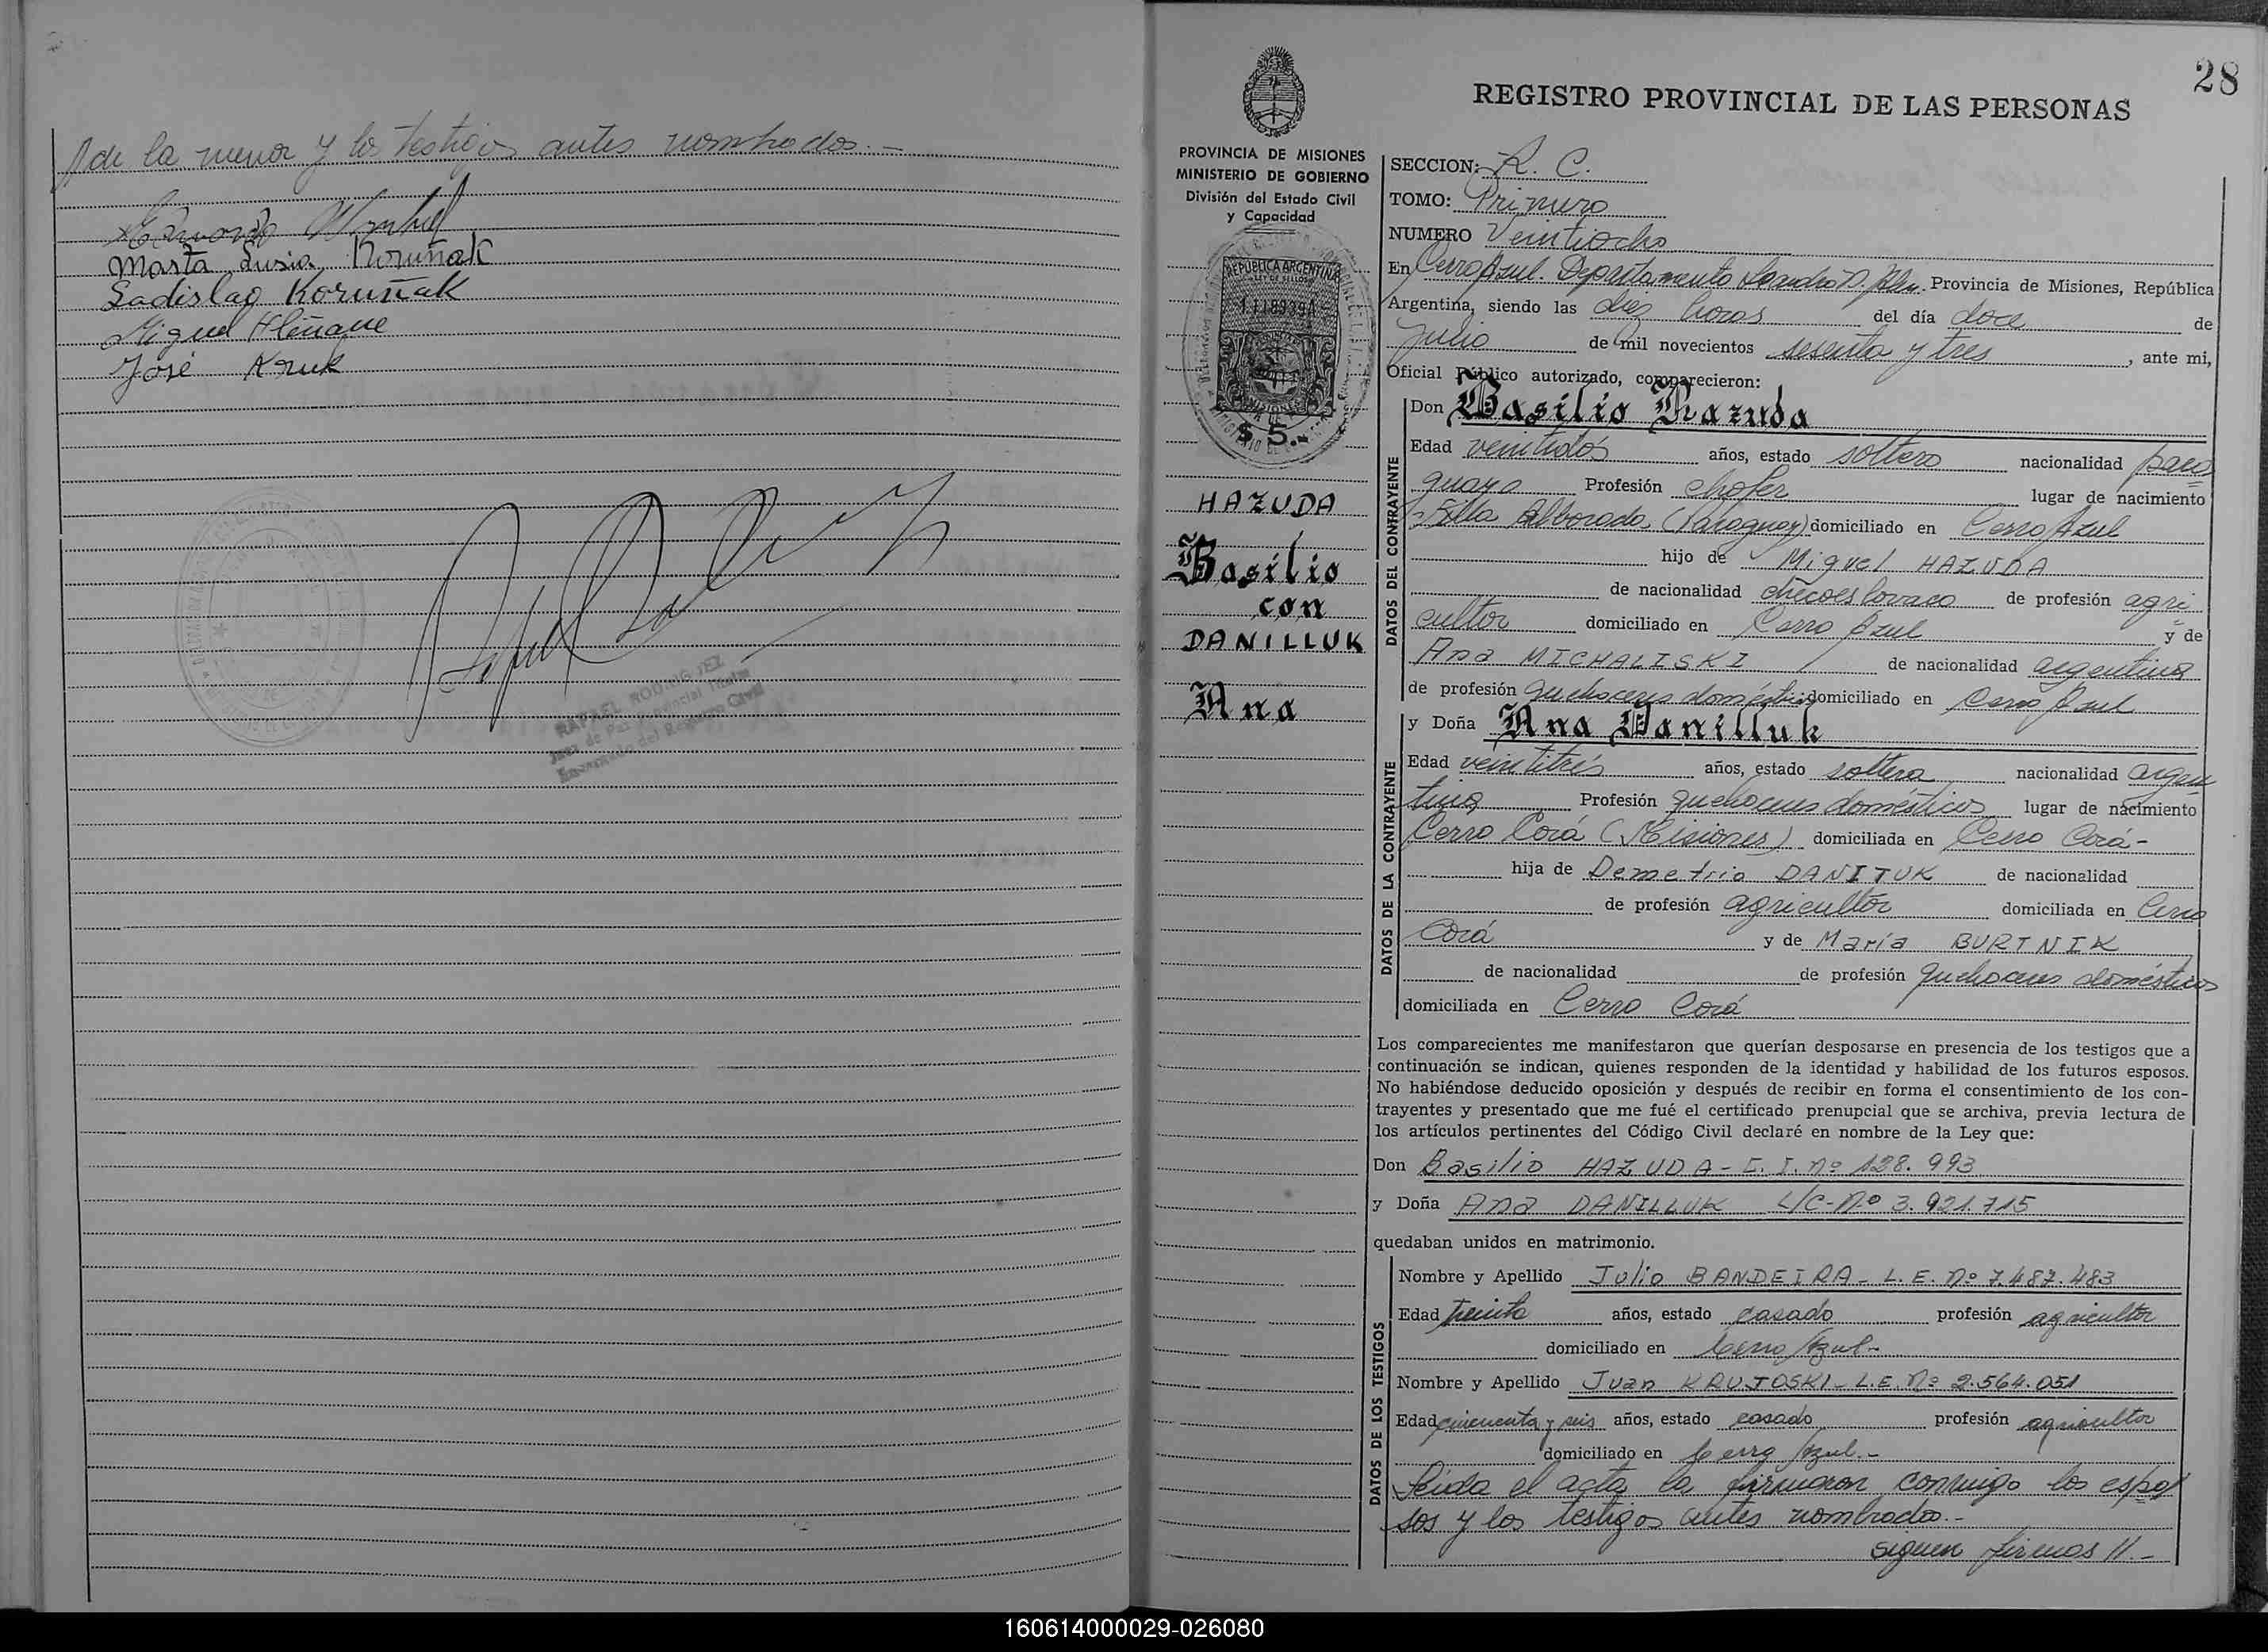 de la menor y los testigos antes nombrados.-
Marta Lusia Koruñak
Ladislao Koruñak
Miguel Hleñaque
José Kruk
RAFAEL RODRIGUEZ
Juez de Paz Provincial Titular
Encargado del Registro Civil
28
REGISTRO PROVINCIAL DE LAS PERSONAS
PROVINCIA DE MISIONES
MINISTERIO DE GOBIERNO
División del Estado Civil
y Capacidad
REPUBLICA ARGENTINA
LEY DE SELLOS
MISIONES
$ 5.-
HAZUDA
Basilio
con
DANILLUK
Ana
SECCION: R. C.
TOMO: Primero
NUMERO Veintiocho
En Cerro Azul. Departamento Leandro N. Alem. Provincia de Misiones, República
Argentina, siendo las diez horas del día doce de
Julio de mil novecientos sesenta y tres, ante mi,
Oficial Público autorizado, comparecieron:
DATOS DEL CONTRAYENTE
Don Basilio Hazuda
Edad veintidós años, estado soltero nacionalidad para
guaya Profesión chofer lugar de nacimiento
Alborada, (Paraguay) domiciliado en Cerro Azul
hijo de Miguel HAZUDA
de nacionalidad checoeslovaco de profesión agri
cultor domiciliado en Cerro Azul y de
Ana MICHALISKI de nacionalidad argentina
de profesión quehaceres domésticos domiciliado en Cerro Azul
DATOS DE LA CONTRAYENTE
y Doña Ana Danilluk
Edad veintitrés años, estado soltera nacionalidad argen
tina Profesión quehaceres domésticos lugar de nacimiento
Cerro Corá (Misiones) domiciliada en Cerro Corá-
hija de Demetrio DANITUK de nacionalidad
de profesión agricultor domiciliada en Cerro
Corá y de María BURTNIK
de nacionalidad de profesión quehaceres domésticos
domiciliada en Cerro Corá
Los comparecientes me manifestaron que querían desposarse en presencia de los testigos que a
continuación se indican, quienes responden de la identidad y habilidad de los futuros esposos.
No habiéndose deducido oposición y después de recibir en forma el consentimiento de los con-
trayentes y presentado que me fué el certificado prenupcial que se archiva, previa lectura de
los artículos pertinentes del Código Civil declaré en nombre de la Ley que:
Don Basilio HAZUDA - C. I. nº 128.993
y Doña Ana DANILLUK L/C-nº 3.921.715
quedaban unidos en matrimonio.
DATOS DE LOS TESTIGOS
Nombre y Apellido Julio BANDEIRA - L. E. nº 7.487.483
Edad treinta años, estado casado profesión agricultor
domiciliado en Cerro Azul-
Nombre y Apellido Juan KRUJOSKI - L.E. nº 2.564.051
Edad cincuenta y seis años, estado casado profesión agricultor
domiciliado en Cerro Azul.-
Leída el acta la firmaron conmigo los espo
sos y los testigos antes nombrados.-
siguen firmas //.-
160614000029-026080